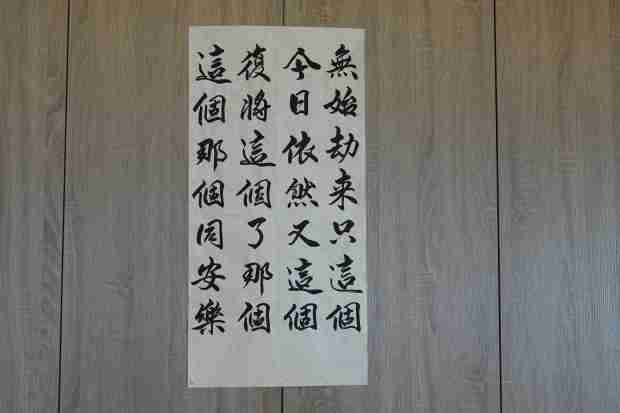 無始劫来只這個
今日依然又這個
復將這個了那個
這個那個同安樂